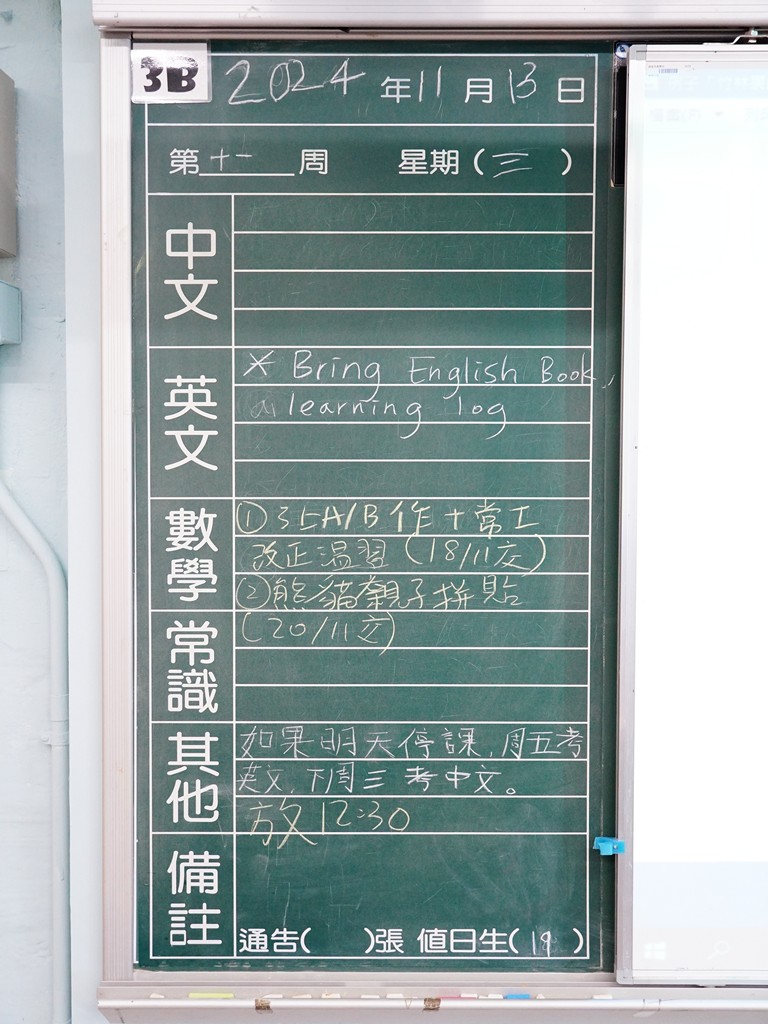 3B
2024年11月13日
第十一周 星期(三)
中文
英文
* Bring English Book,
learning log
數學
①35A/B作+常工
改正温習(18/11交)
②熊貓親子拼貼
常識
(20/11交)
其他
如果明天停課,周五考
英文,下周三考中文。
放12:30
備註
通告( )張 值日生(19)